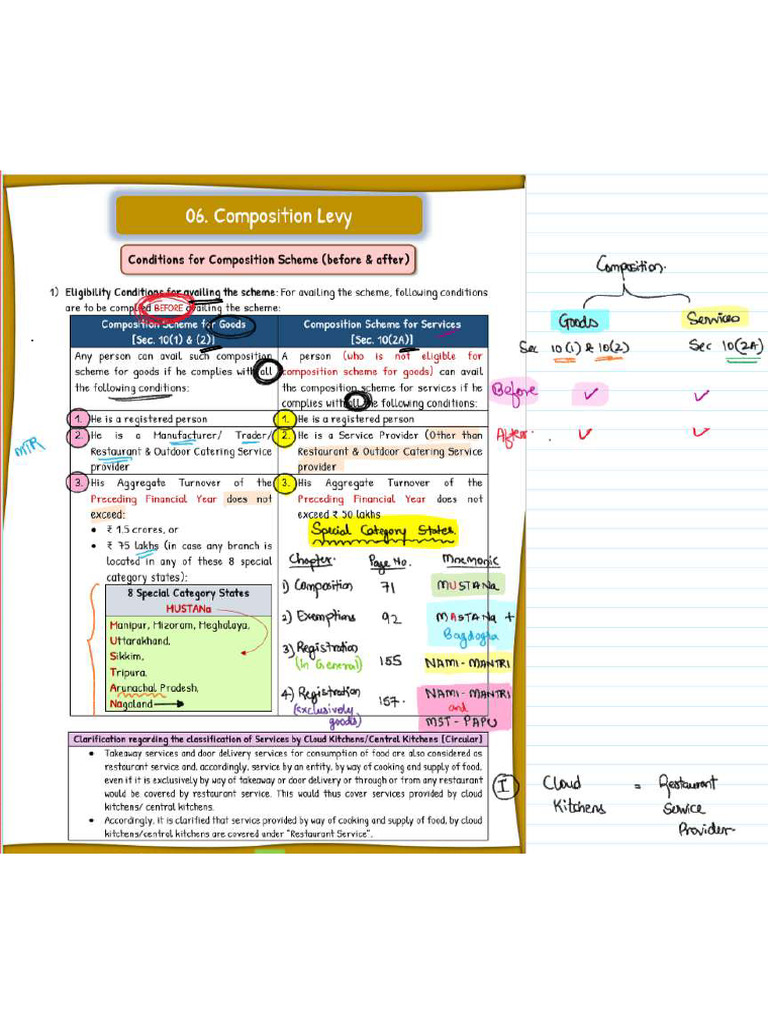 06. Composition Levy
Conditions for Composition Scheme (before & after)
1) Eligibility Conditions for availing the scheme: For availing the scheme, following conditions
are to be complied BEFORE availing the scheme:
Composition Scheme for Goods
[Sec. 10(1) & (2)]
Any person can avail such composition
scheme for goods if he complies with all
the following conditions:
Composition Scheme for Services
[Sec. 10(2A)]
A person (who is not eligible for
composition scheme for goods) can avail
the composition scheme for services if he
complies with all the following conditions:
1. He is a registered person
1. He is a registered person
MTR
2. He is a Manufacturer/ Trader/
Restaurant & Outdoor Catering Service
provider
2. He is a Service Provider (Other than
Restaurant & Outdoor Catering Service
provider
3. His Aggregate Turnover of the
Preceding Financial Year does not
exceed:
• ₹ 1.5 crores, or
• ₹ 75 lakhs (in case any branch is
located in any of these 8 special
category states):
8 Special Category States
MUSTANa
Manipur, Mizoram, Meghalaya,
Uttarakhand,
Sikkim,
Tripura,
Arunachal Pradesh,
Nagaland
3. His Aggregate Turnover of the
Preceding Financial Year does not
exceed ₹ 50 lakhs
Special Category States
Chapter Page No. Mnemonic
1) Composition 71 MUSTANa
2) Exemptions 92 MASTANa +
Bagdogra
3) Registration 155 NAMI-MANTRI
(In General)
4) Registration 157. NAMI-MANTRI
(exclusively and
goods) MST-PAPU
Clarification regarding the classification of Services by Cloud Kitchens/Central Kitchens [Circular]
• Takeaway services and door delivery services for consumption of food are also considered as
restaurant service and, accordingly, service by an entity, by way of cooking and supply of food,
even if it is exclusively by way of takeaway or door delivery or through or from any restaurant
would be covered by restaurant service. This would thus cover services provided by cloud
kitchens/ central kitchens.
• Accordingly, it is clarified that service provided by way of cooking and supply of food, by cloud
kitchens/central kitchens are covered under "Restaurant Service".
Composition.
Goods Services
Sec 10(1) & 10(2) Sec 10(2A)
Before ✓ ✓
After. ✓ ✓
I Cloud = Restaurant
Kitchens Service
Provider.